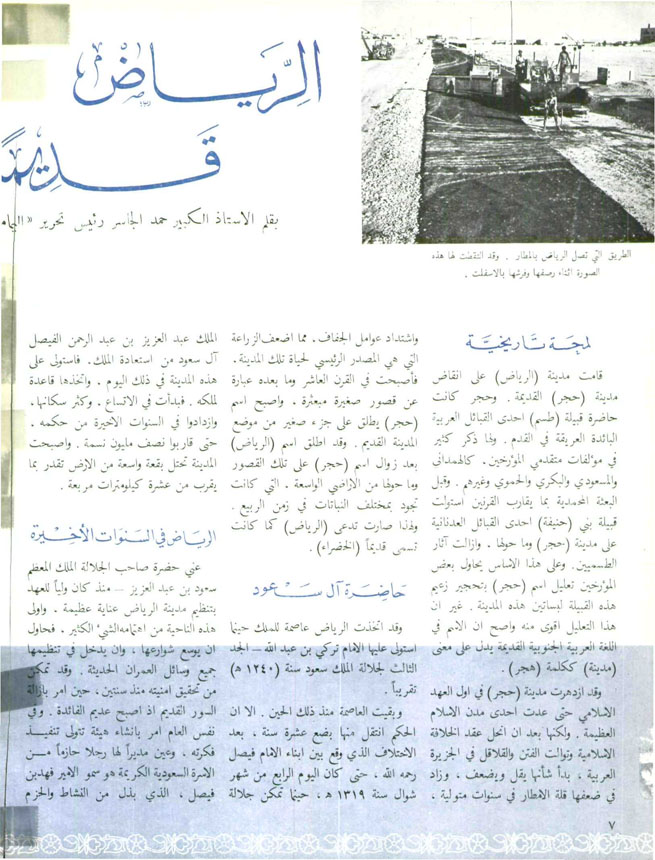 الرياض
قديما
بقلم الاستاذ الكبير حمد الجاسر رئيس تحرير «اليمام
الطريق التي تصل الرياض بالمطار . وقد التقطت لها هذه
الصورة اثناء رصفها وفرشها بالاسفلت .
لمحة تاريخية
قامت مدينة (الرياض) على انقاض
مدينة (حجر) القديمة . وحجر كانت
حاضرة قبيلة (طسم) احدى القبائل العربية
البائدة العريقة في القدم . ولها ذكر كثير
في مؤلفات متقدمي المؤرخين . كالهمداني
والمسعودي والبكري والحموي وغيرهم . وقبل
البعثة المحمدية بما يقارب القرنين استولت
قبيلة بني (حنيفة) احدى القبائل العدنانية
على مدينة (حجر) وما حولها . وازالت آثار
الطسميين . وعلى هذا الاساس يحاول بعض
المؤرخين تعليل اسم (حجر) بتحجير زعيم
هذه القبيلة لبساتين هذه المدينة . غير ان
هذا التعليل اقوى منه واضح ان الاسم في
اللغة العربية الجنوبية القديمة يدل على معنى
(مدينة) ككلمة (هجر) .
وقد ازدهرت مدينة (حجر) في اول العهد
الاسلامي حتى عدت احدى مدن الاسلام
العظيمة . ولكنها بعد ان انحل عقد الخلافة
الاسلامية وتوالت الفتن والقلاقل في الجزيرة
العربية ، بدأ شأنها يقل ويضعف ، وزاد
في ضعفها قلة الامطار في سنوات متولية .
واشتداد عوامل الجفاف . مما اضعف الزراعة
التي هي المصدر الرئيسي لحياة تلك المدينة .
فأصبحت في القرن العاشر وما بعده عبارة
عن قصور صغيرة مبعثرة . واصبح اسم
(حجر) يطلق على جزء صغير من موضع
المدينة القديم . وقد اطلق اسم (الرياض)
بعد زوال اسم (حجر) على تلك القصور
وما حولها من الاراضي الواسعة . التي كانت
تجود بمختلف النباتات في زمن الربيع .
ولهذا صارت تدعى (الرياض) كما كانت
تسمى قديماً (الخضراء) .
حاضرة آل سعود
وقد اتخذت الرياض عاصمة للملك حينما
استولى عليها الامام تركي بن عبد الله – الجد
الثالث لجلالة الملك سعود سنة (١٢٤٠ ه)
تقريباً .
وبقيت العاصمة منذ ذلك الحين . الا ان
الحكم انتقل منها بضع عشرة سنة ، بعد
الاختلاف الذي وقع بين ابناء الامام فيصل
رحمه الله ، حتى كان اليوم الرابع من شهر
شوال سنة ١٣١٩ ه ، حينما تمكن جلالة
الملك عبد العزيز بن عبد الرحمن الفيصل
آل سعود من استعادة الملك . فاستولى على
هذه المدينة في ذلك اليوم . واتخذها قاعدة
لملكه . فبدأت في الاتساع . وكثر سكانها .
وازدادوا في السنوات الاخيرة من حكمه .
حتى قاربوا نصف مليون نسمة . واصبحت
المدينة تحتل بقعة واسعة من الارض تقدر بما
يقرب من عشرة كيلومترات مربعة .
الرياض في السنوات الأخيرة
عني حضرة صاحب الجلالة الملك المعظم
سعود بن عبد العزيز – منذ كان ولياً للعهد
بتنظيم مدينة الرياض عناية عظيمة . واولى
هذه الناحية من اهتمامه الشيء الكثير . فحاول
ان يوسع شوارعها ، وان يدخل في تنظيمها
جميع وسائل العمران الحديثة . وقد تمكن
من تحقيق امنيته منذ سنتين ، حين امر بازالة
السور القديم اذ اصبح عديم الفائدة . وفي
نفس العام امر بانشاء هيئة تتولى تنفيذ
فكرته ، وعين مديراً لها رجلا حازماً من
الاسرة السعودية الكريمة هو سمو الامير فهد بن
فيصل ، الذي بذل من النشاط والحزم
٧